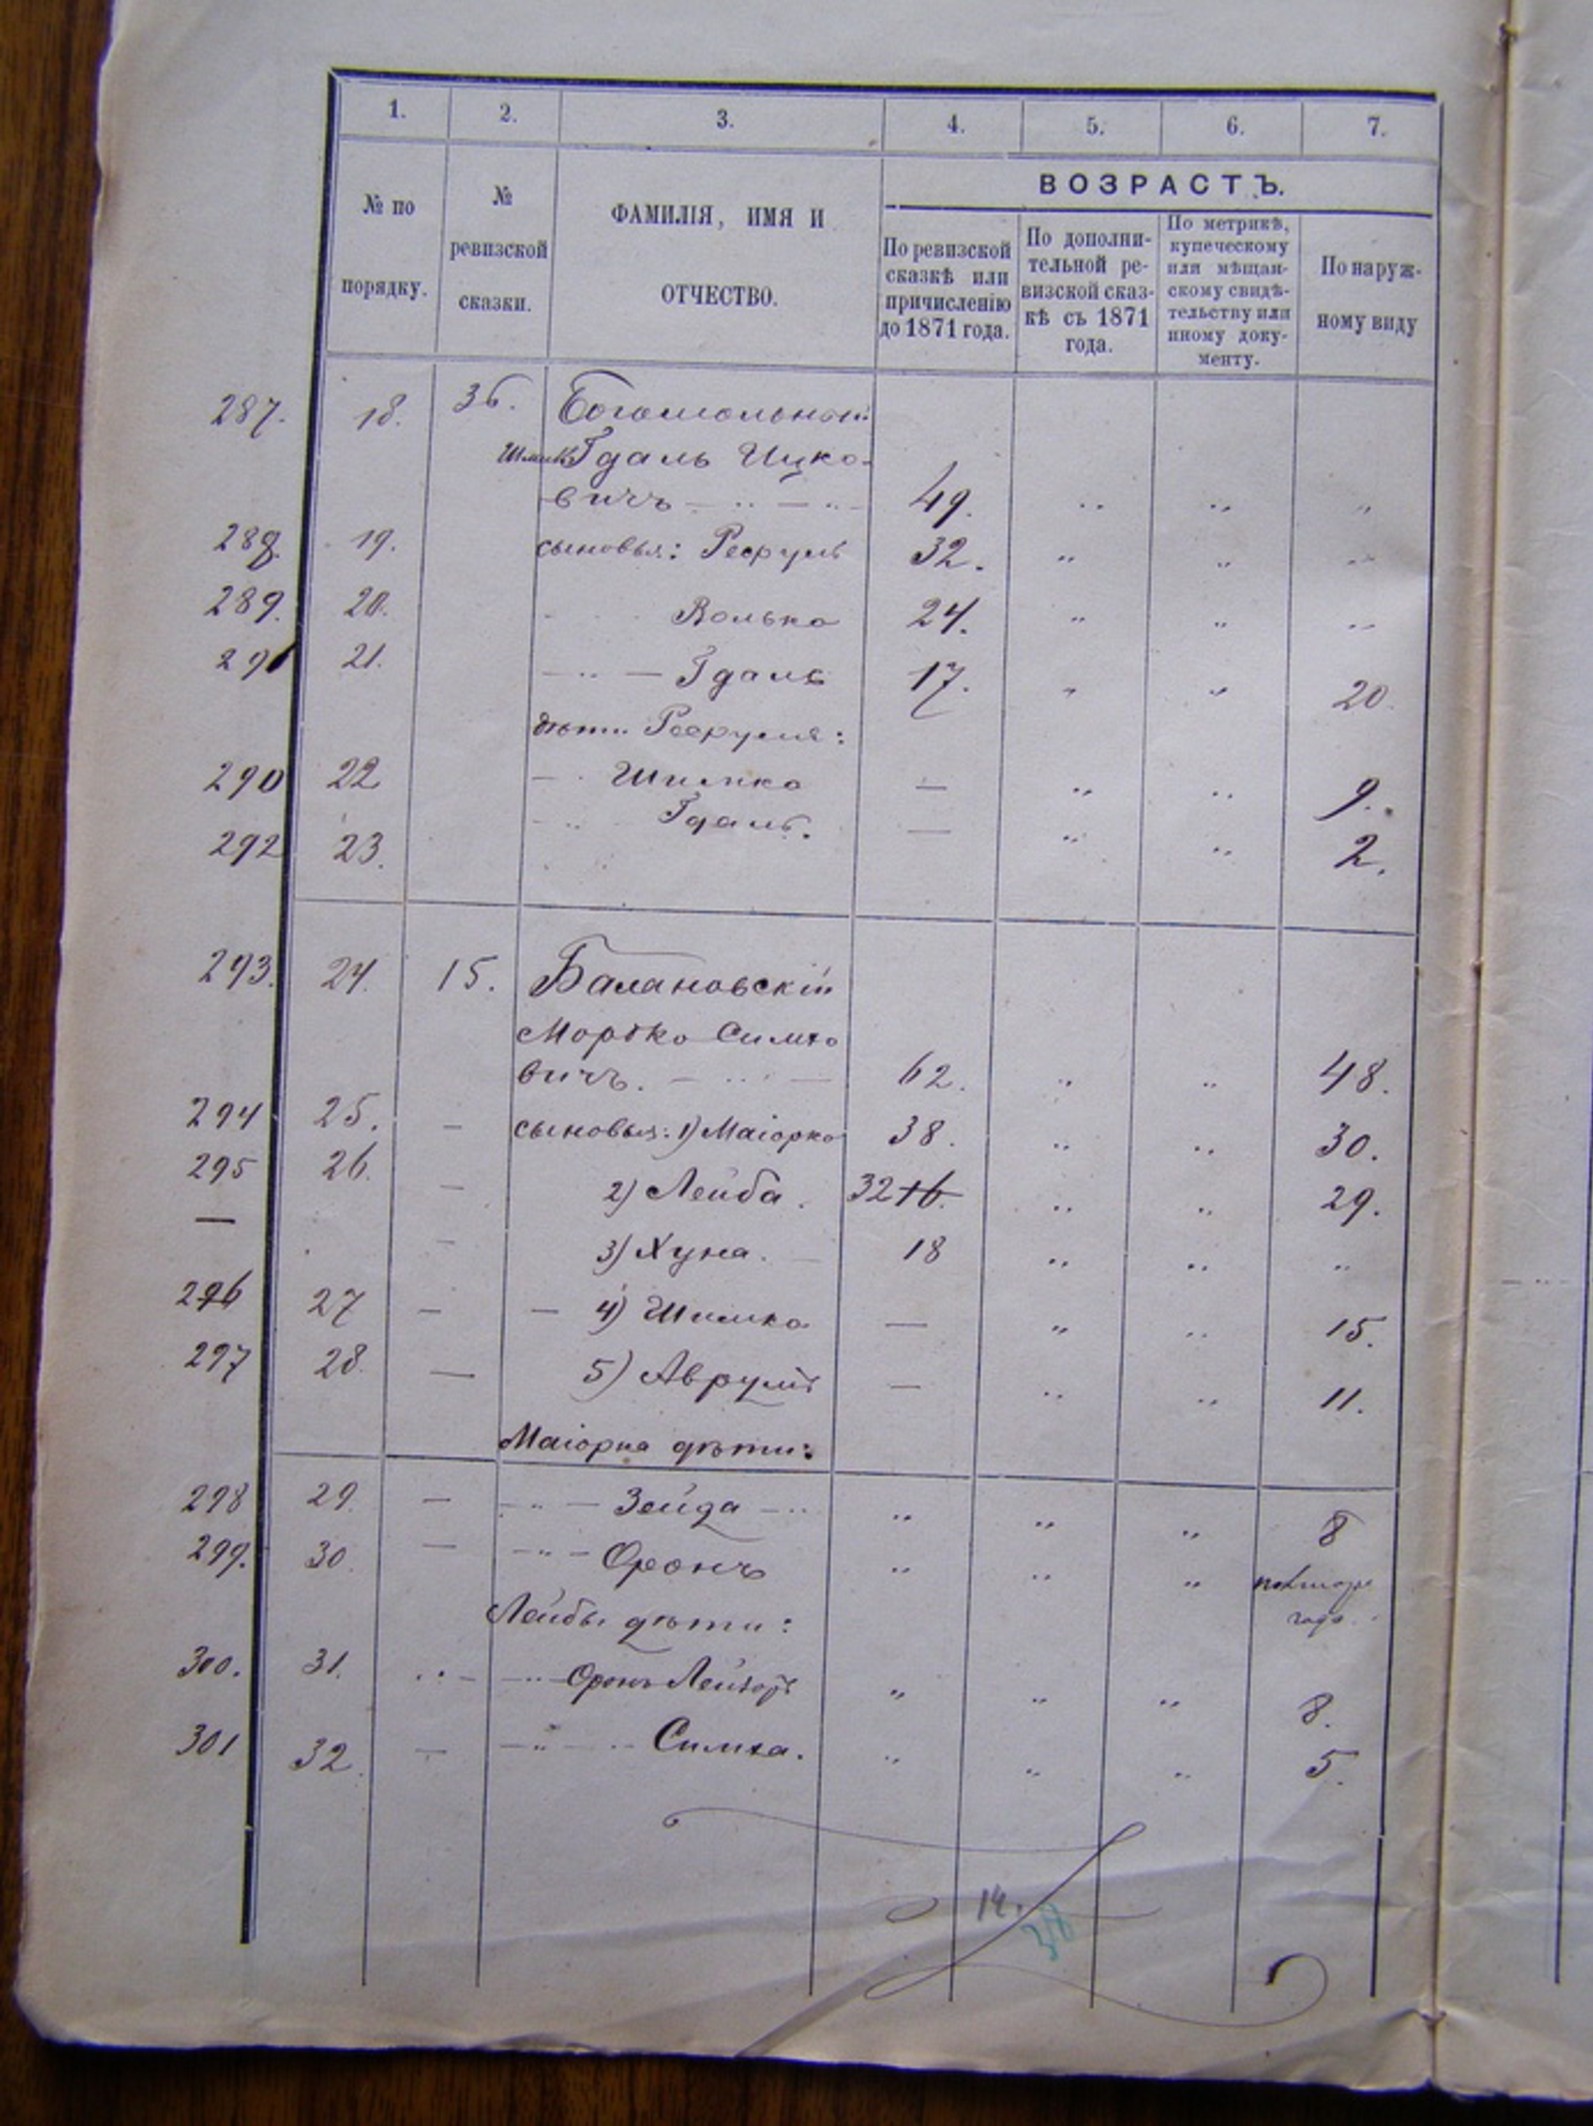 1. 2. 3. 4. 5. 6. 7.
№ по порядку.
№ ревизской сказки.
ФАМИЛІЯ, ИМЯ И ОТЧЕСТВО.
ВОЗРАСТЪ.
По ревизской сказкѣ или причисленію до 1871 года.
По дополни-
тельной ре-
визской сказ-
кѣ съ 1871
года.
По метрикѣ,
купеческому
или мѣщан-
скому свидѣ-
тельству или
иному доку-
менту.
По наруж-
ному виду
287. 18. 36. Богомольный
Гдаль Ицко-
вичъ — „ — „ 49. „ „ „
288. 19. сыновья: 32. „ „ „
289. 20. Волько 24. „ „ „
291 21. — „ — Гдаль 17. „ „ 20.
дѣти
290 22 — Шимко — „ „ 9.
292 23. — „ Гдаль. — „ „ 2.
293. 24. 15. Балановскій
Мордко Симхо
вичъ. — „ — 62. „ „ 48.
294 25. — сыновья: 1) Маіорко 38. „ „ 30.
295 26. — 2) Лейба. 32 16. „ „ 29.
— — 3) Хуна. — 18 „ „ „
296 27 — — 4) Шимко — „ „ 15.
297 28. — 5) Аврумъ — „ „ 11.
Маіорка дѣти:
298 29. — — „ — Зейда — „ „ „ „ 8
299. 30. — — „ — Оронъ „ „ „ полтора
года.
Лейбы дѣти:
300. 31. „ — — „ — Оронъ Лейзоръ „ „ „ 8.
301 32. — — „ — „ Симха. „ „ „ 5.
14.